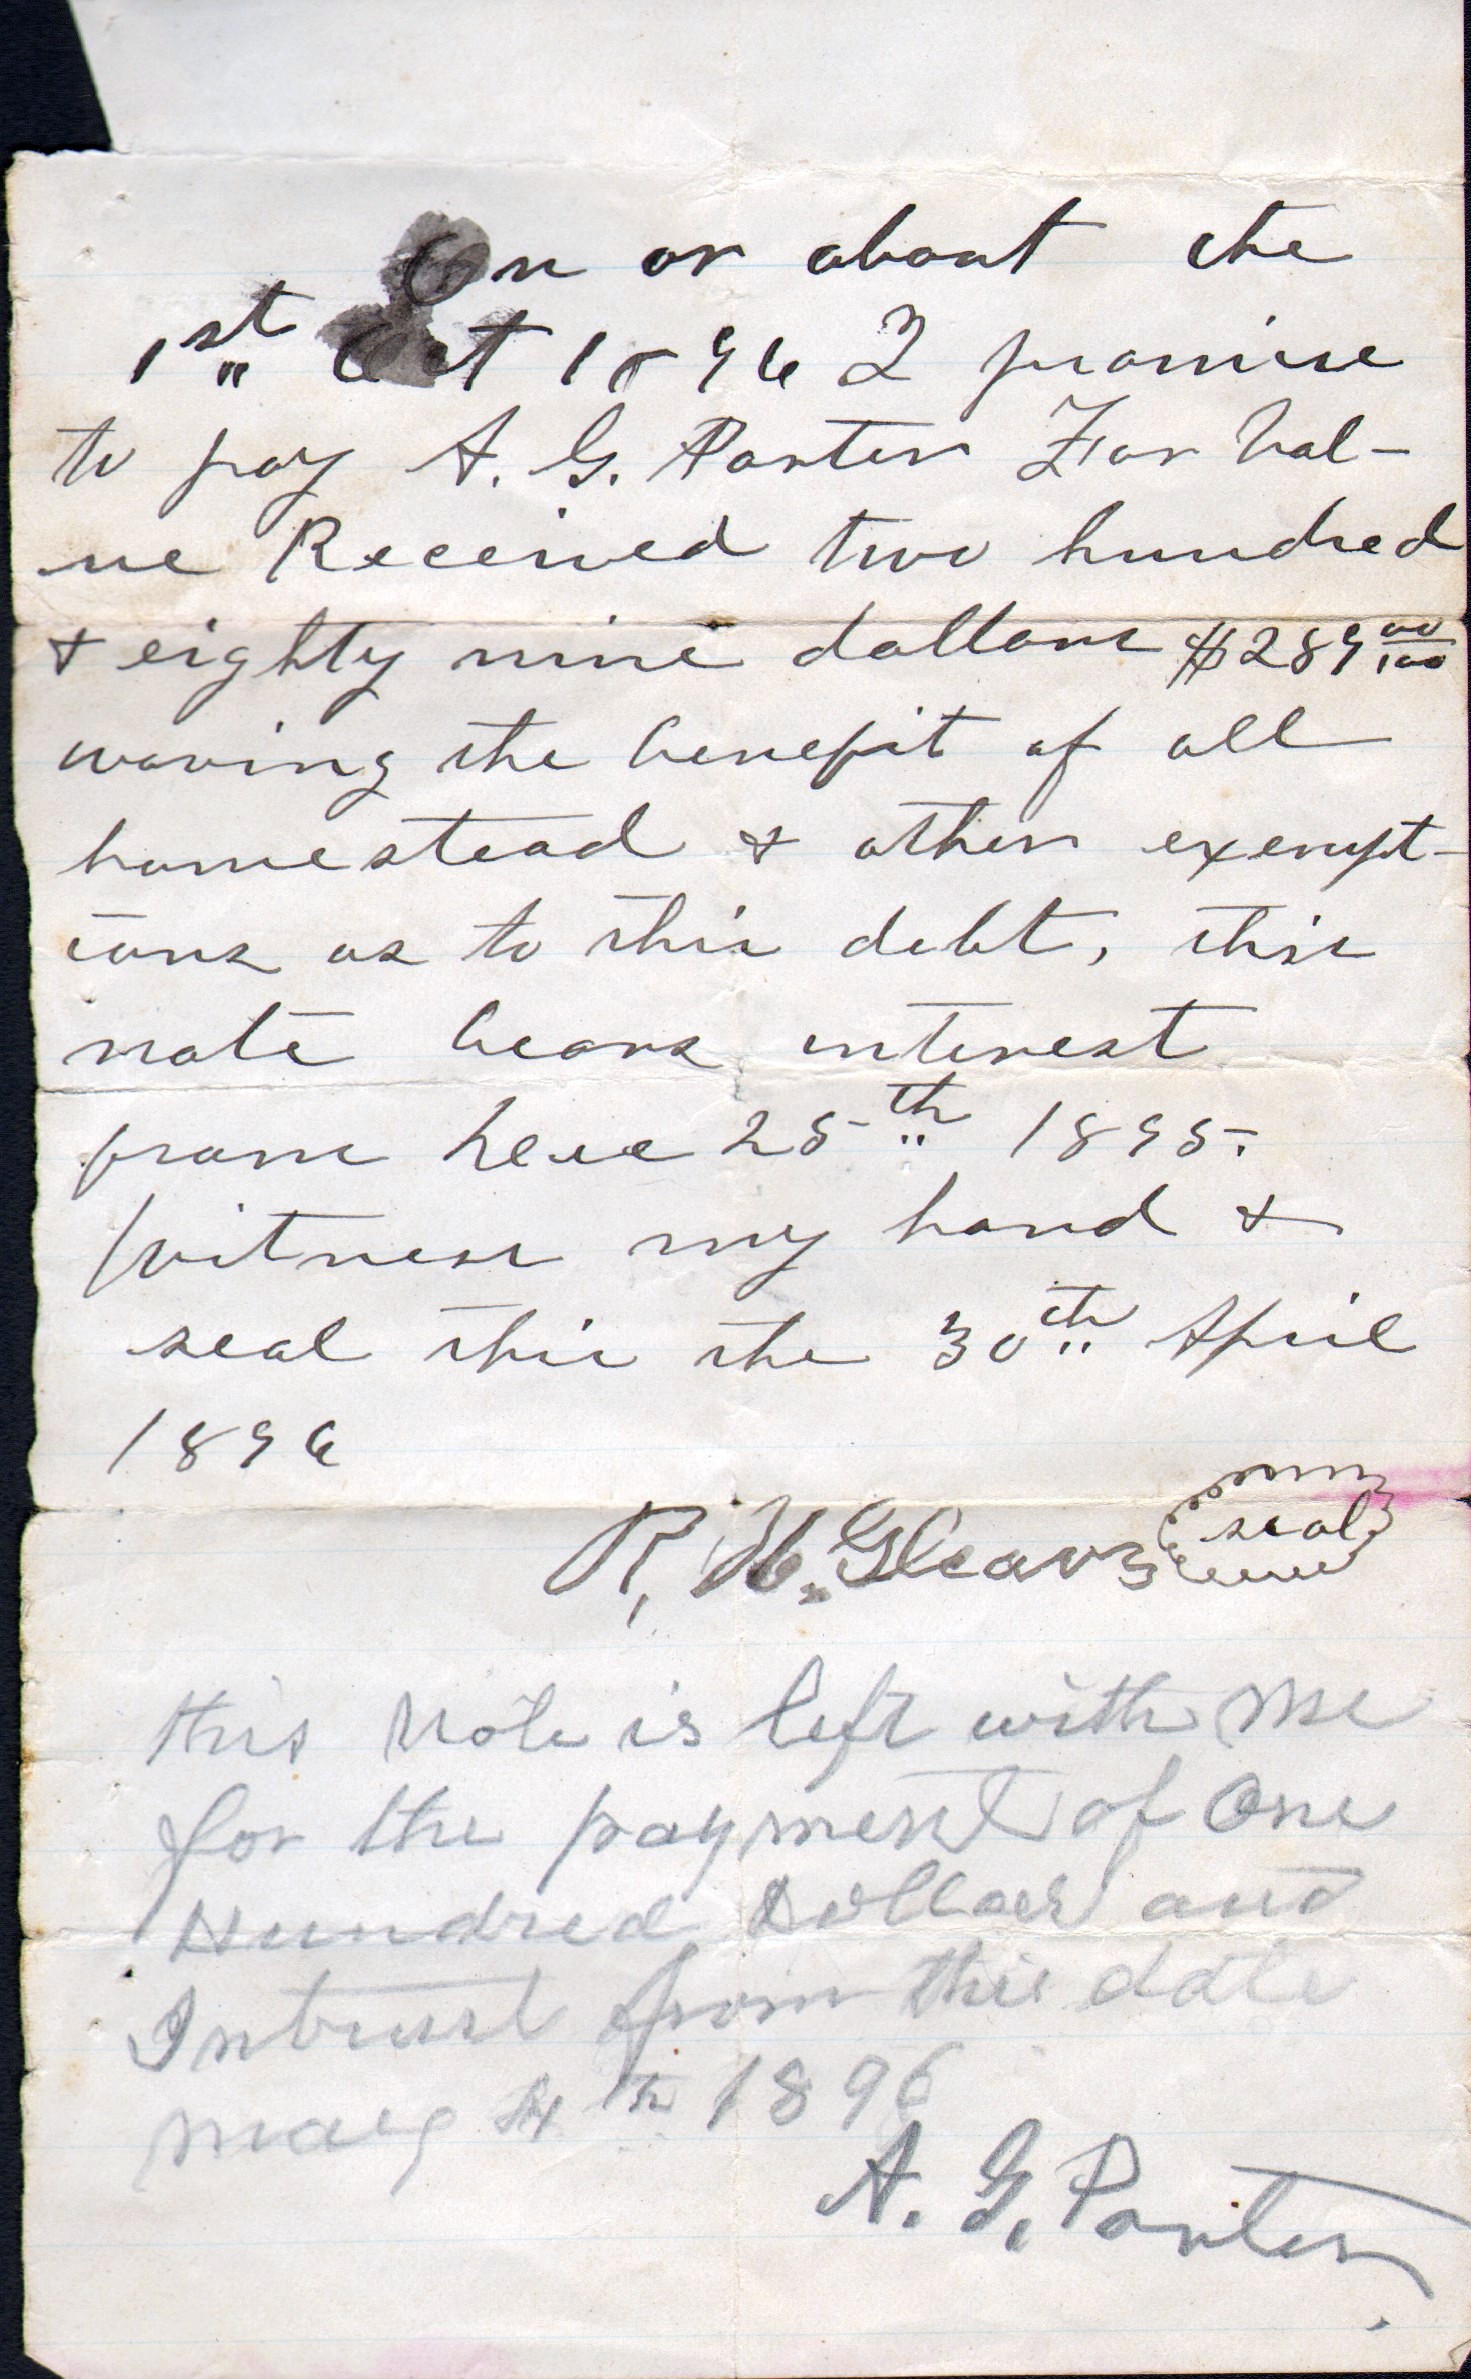 On or about the
1st Oct 1896 I promise
to pay A. G. Porter For Val-
ue Received two hundred
& eighty nine dollars $289 00/100
waving the benefit of all
homestead & other exempt-
ions as to this debt, this
note bears interest
from Dec 25th 1895.
Witness my hand &
seal this the 30th April
1896
R. H. Gleaves seal
this Note is left with me
for the payment of One
Hundred Dollars and
Intrust from this date
May 4th 1896
A. G. Porter